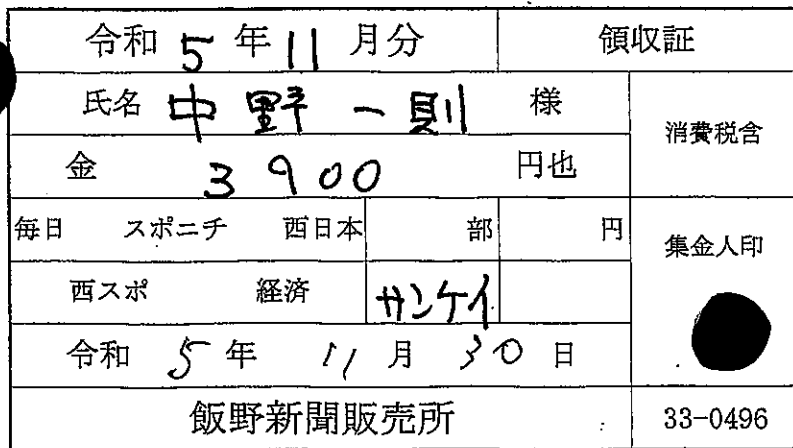 令和 5 年 11 月分 領収証
氏名 中野一則 様
消費税含
金 3900 円也
毎日 スポニチ 西日本 部 円
集金人印
西スポ 経済 サンケイ
令和 5 年 11 月 30 日
飯野新聞販売所 33-0496